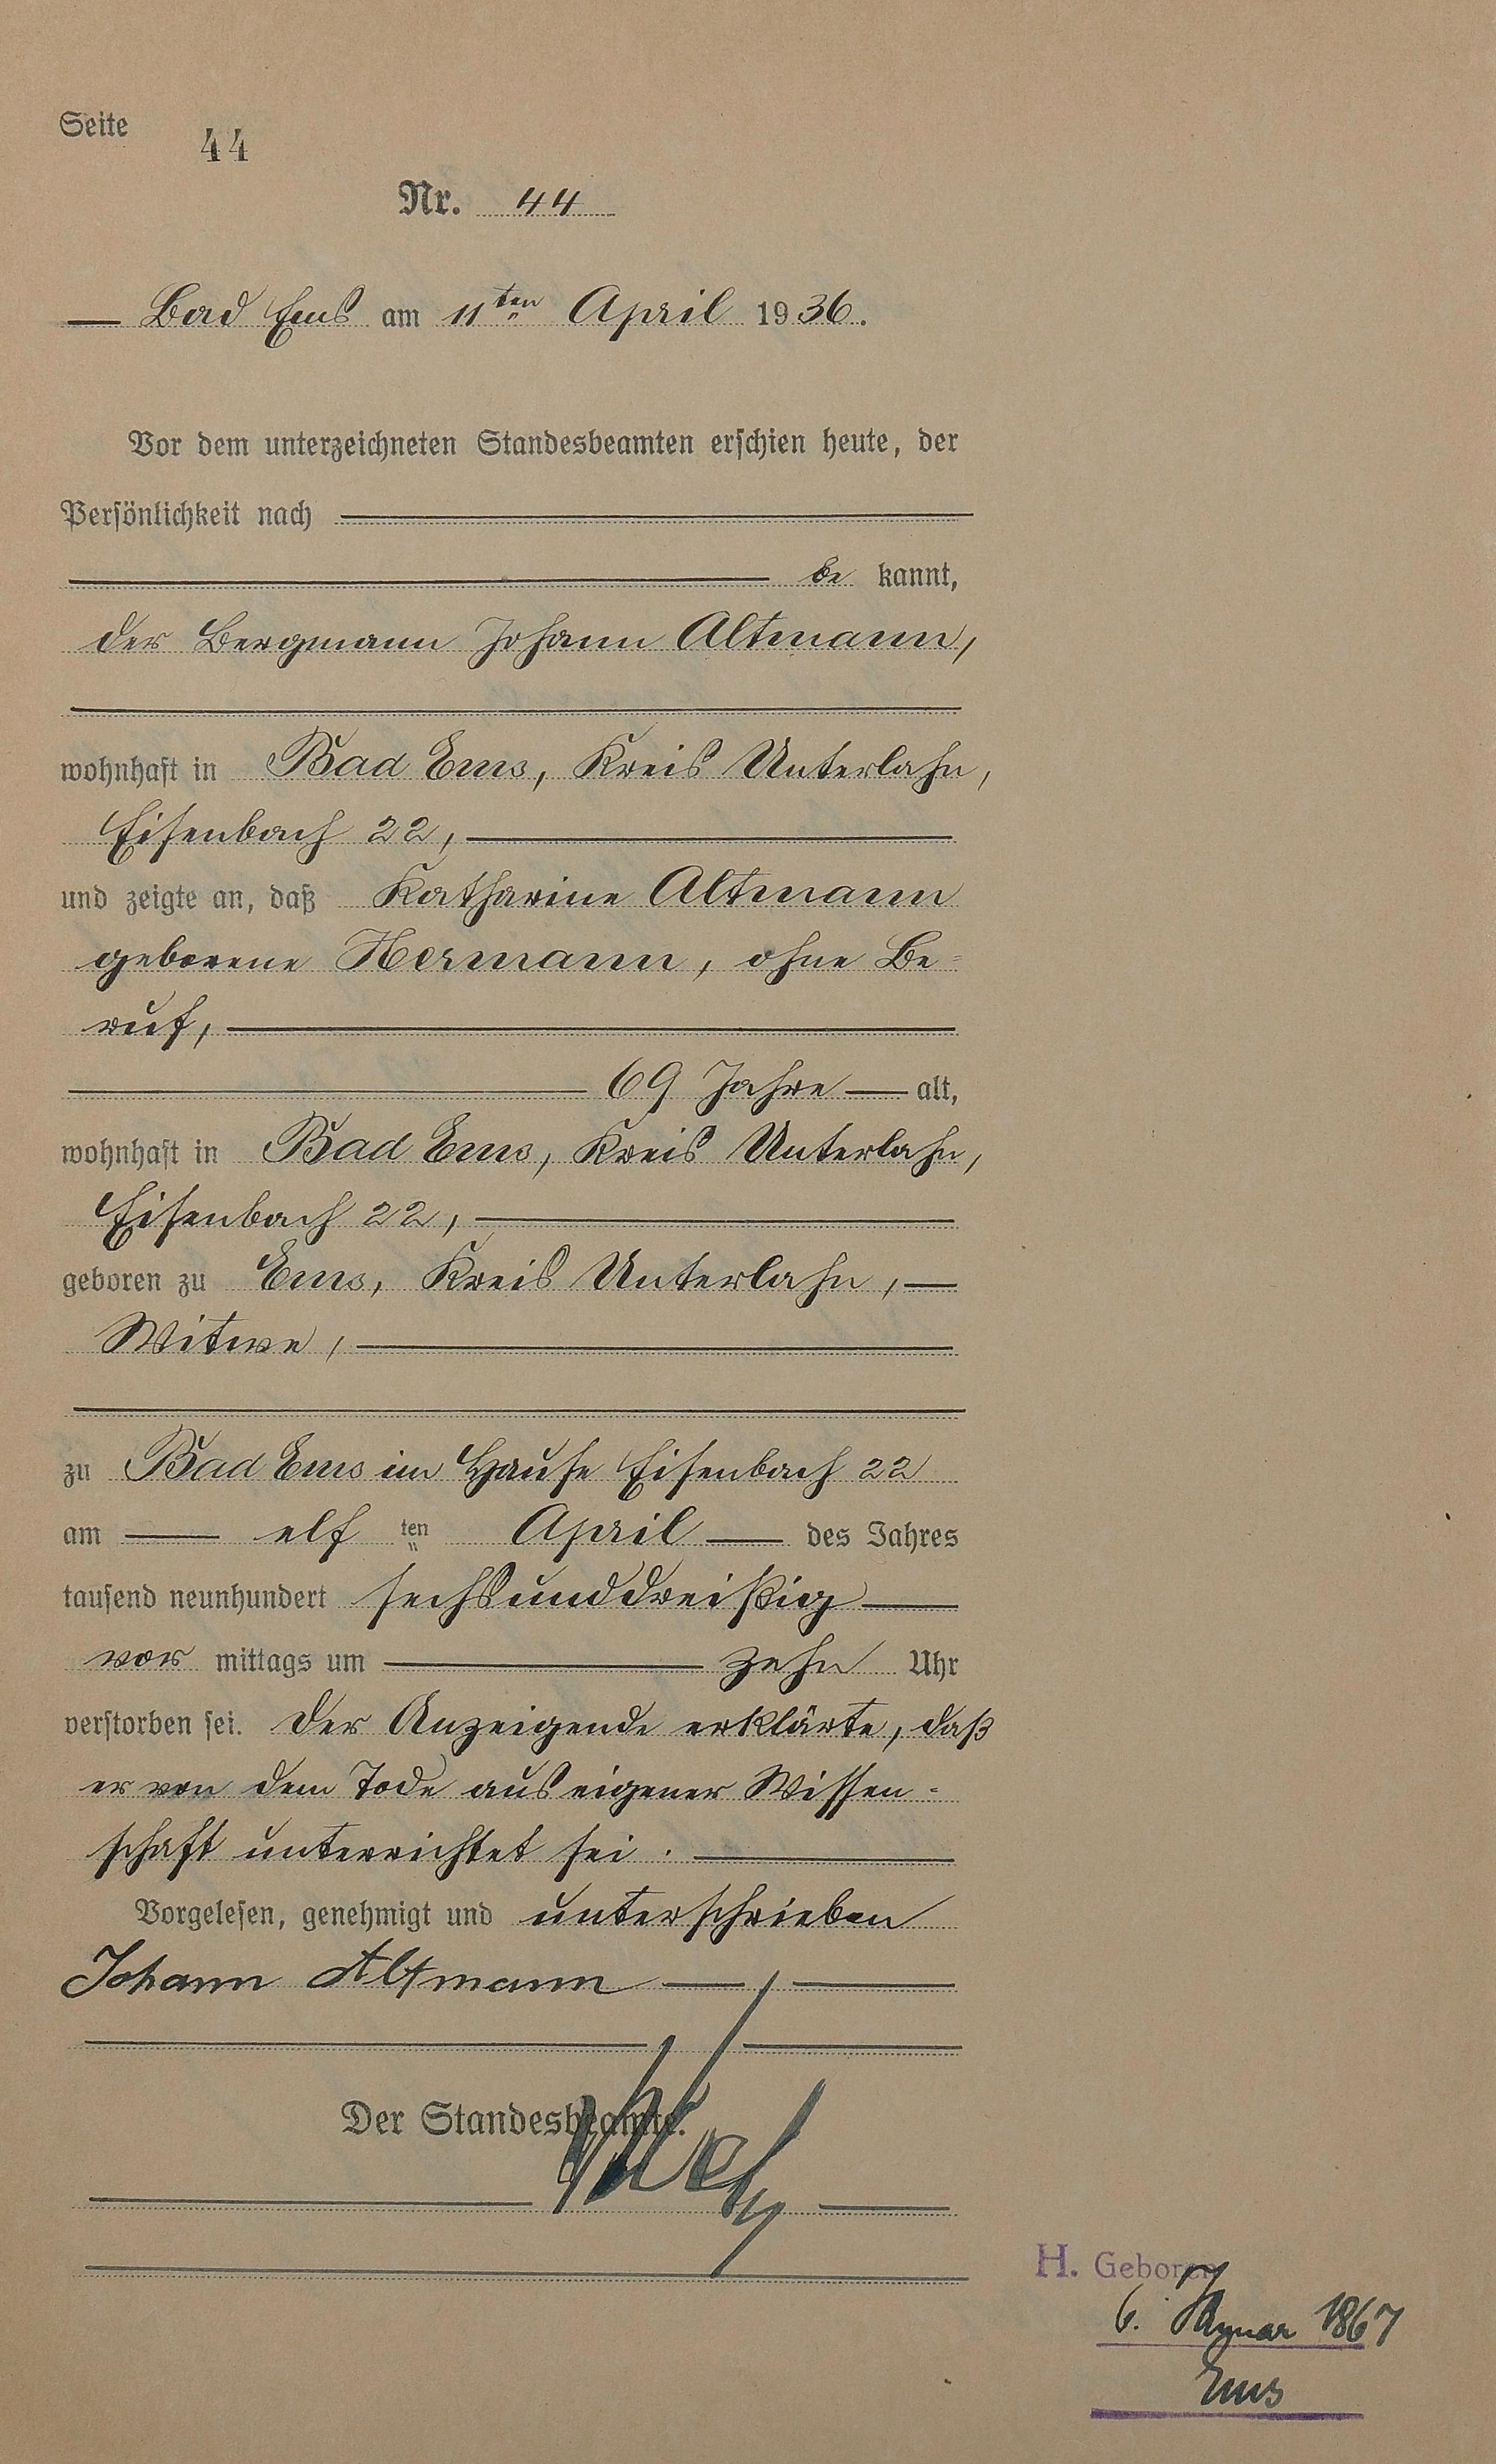 Seite 44
Nr. 44
Bad Ems am 11ten April 1936.
Vor dem unterzeichneten Standesbeamten erschien heute, der
Persönlichkeit nach
be kannt,
der Bergmann Johann Altmann,
wohnhaft in Bad Ems, Kreis Unterlahn,
Eisenbach 22,
und zeigte an, daß Katharine Altmann
geborene Hermann, ohne Be=
ruf,
69 Jahre alt,
wohnhaft in Bad Ems, Kreis Unterlahn,
Eisenbach 22,
geboren zu Ems, Kreis Unterlahn,
Witwe,
zu Bad Ems im Hause Eisenbach 22
am elf ten April des Jahres
tausend neunhundert sechsunddreißig
vor mittags um zehn Uhr
verstorben sei. Der Anzeigende erklärte, daß
er von dem Tode aus eigener Wissen=
schaft unterrichtet sei.
Vorgelesen, genehmigt und unterschrieben
Johann Altmann
Der Standesbeamte.
H. Geboren
6. Januar 1867
Ems